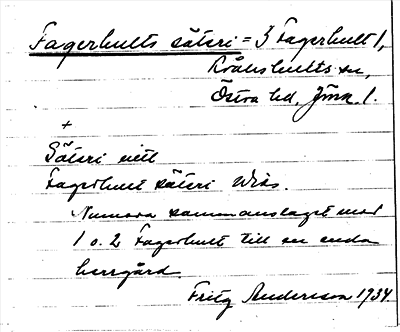 Fagerhults säteri = 3 Fagerhult 1,
Kråkshults sn,
Östra hd, Jönk. l.
+
Säteri vitt
Fagerhult säteri
Numera sammanslaget med
1 o. 2 Fagerhult till en enda
herrgård.
Fritz Anderson 1934